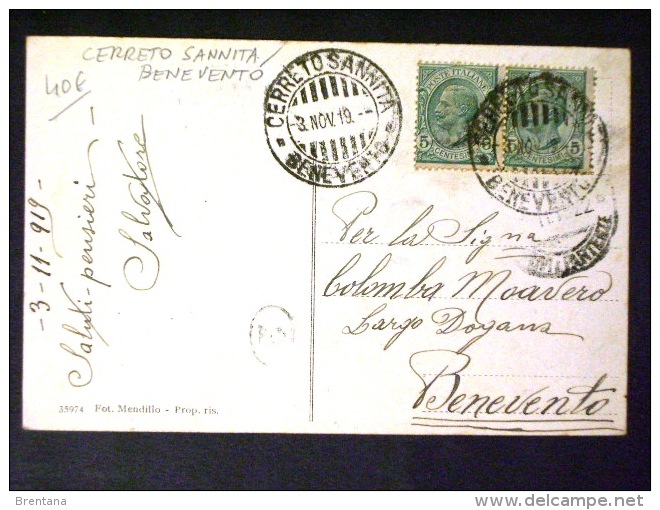 CERRETO SANNITA/
BENEVENTO
40€
CERRETO SANNITA
3. NOV. 19. -
BENEVENTO
POSTE ITALIANE
5
CENTESIMI
5
CENTESIMI
BENEVENTO
-3-11-919-
Saluti-pensieri-
Salvatore
Per la Signa
Colomba Moavero
Largo Dogana
Benevento
35974 Fot. Mendillo - Prop. ris.
Brentana
delcampe.net